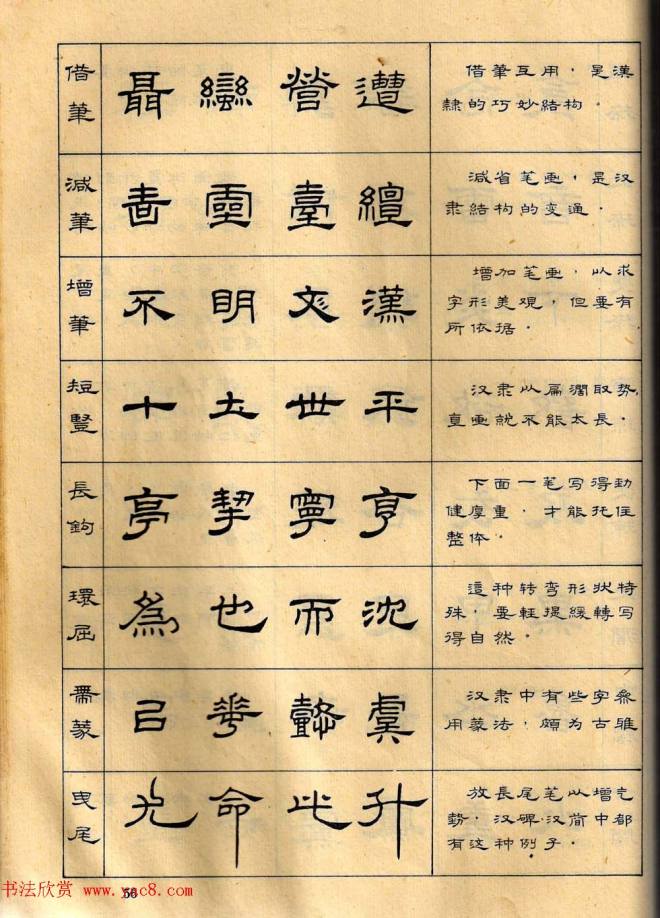 借筆
聶 蠻 營 遭
借筆互用，是漢
隸的巧妙結构．
減筆
書 靈 臺 纏
減省笔画，是汉
隶結构的变通．
增筆
不 明 文 漢
增加笔画，以求
字形美观，但要有
所依据．
短豎
十 土 世 平
汉隶以扁濶取势，
直画就不能太長．
長鈎
亭 挈 寧 亨
下面一笔写得劲
健厚重，才能托住
整体．
環屈
為 也 而 沈
這种转弯形状特
殊，要輊提緩轉写
得自然．
帶篆
己 華 懿 虞
汉隶中有些字兼
用篆法，頗为古雅
曳尾
允 命 此 升
放長尾笔以增气
勢，汉碑汉简中都
有这种例子．
56
书法欣赏 www.yac8.com